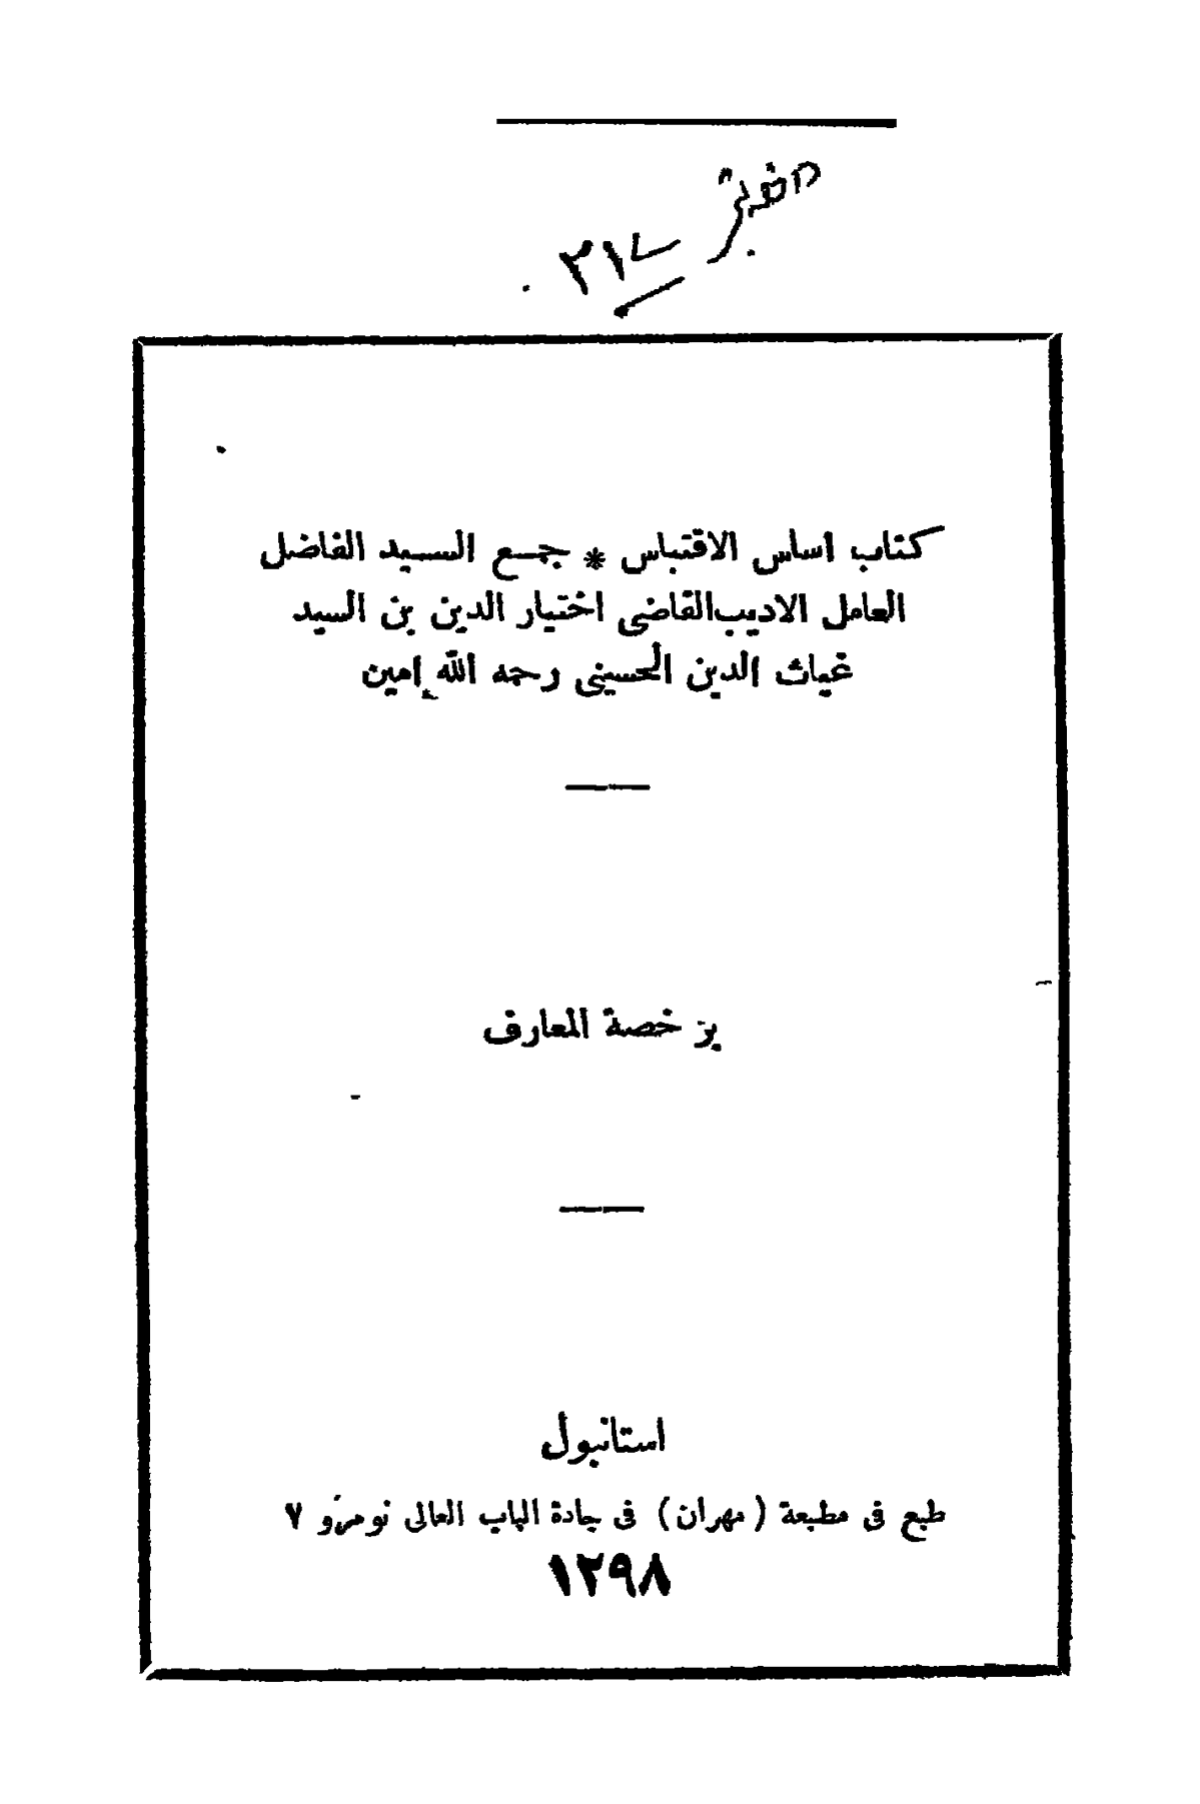 كتاب اساس الاقتباس * جمع السيد الفاضل
العامل الاديب القاضى اختيار الدين بن السيد
غياث الدين الحسينى رحمه الله إمين
بر خصة المعارف
استانبول
طبع فى مطبعة ( مهران ) فى جادة الباب العالى نومرو ٧
١٢٩٨